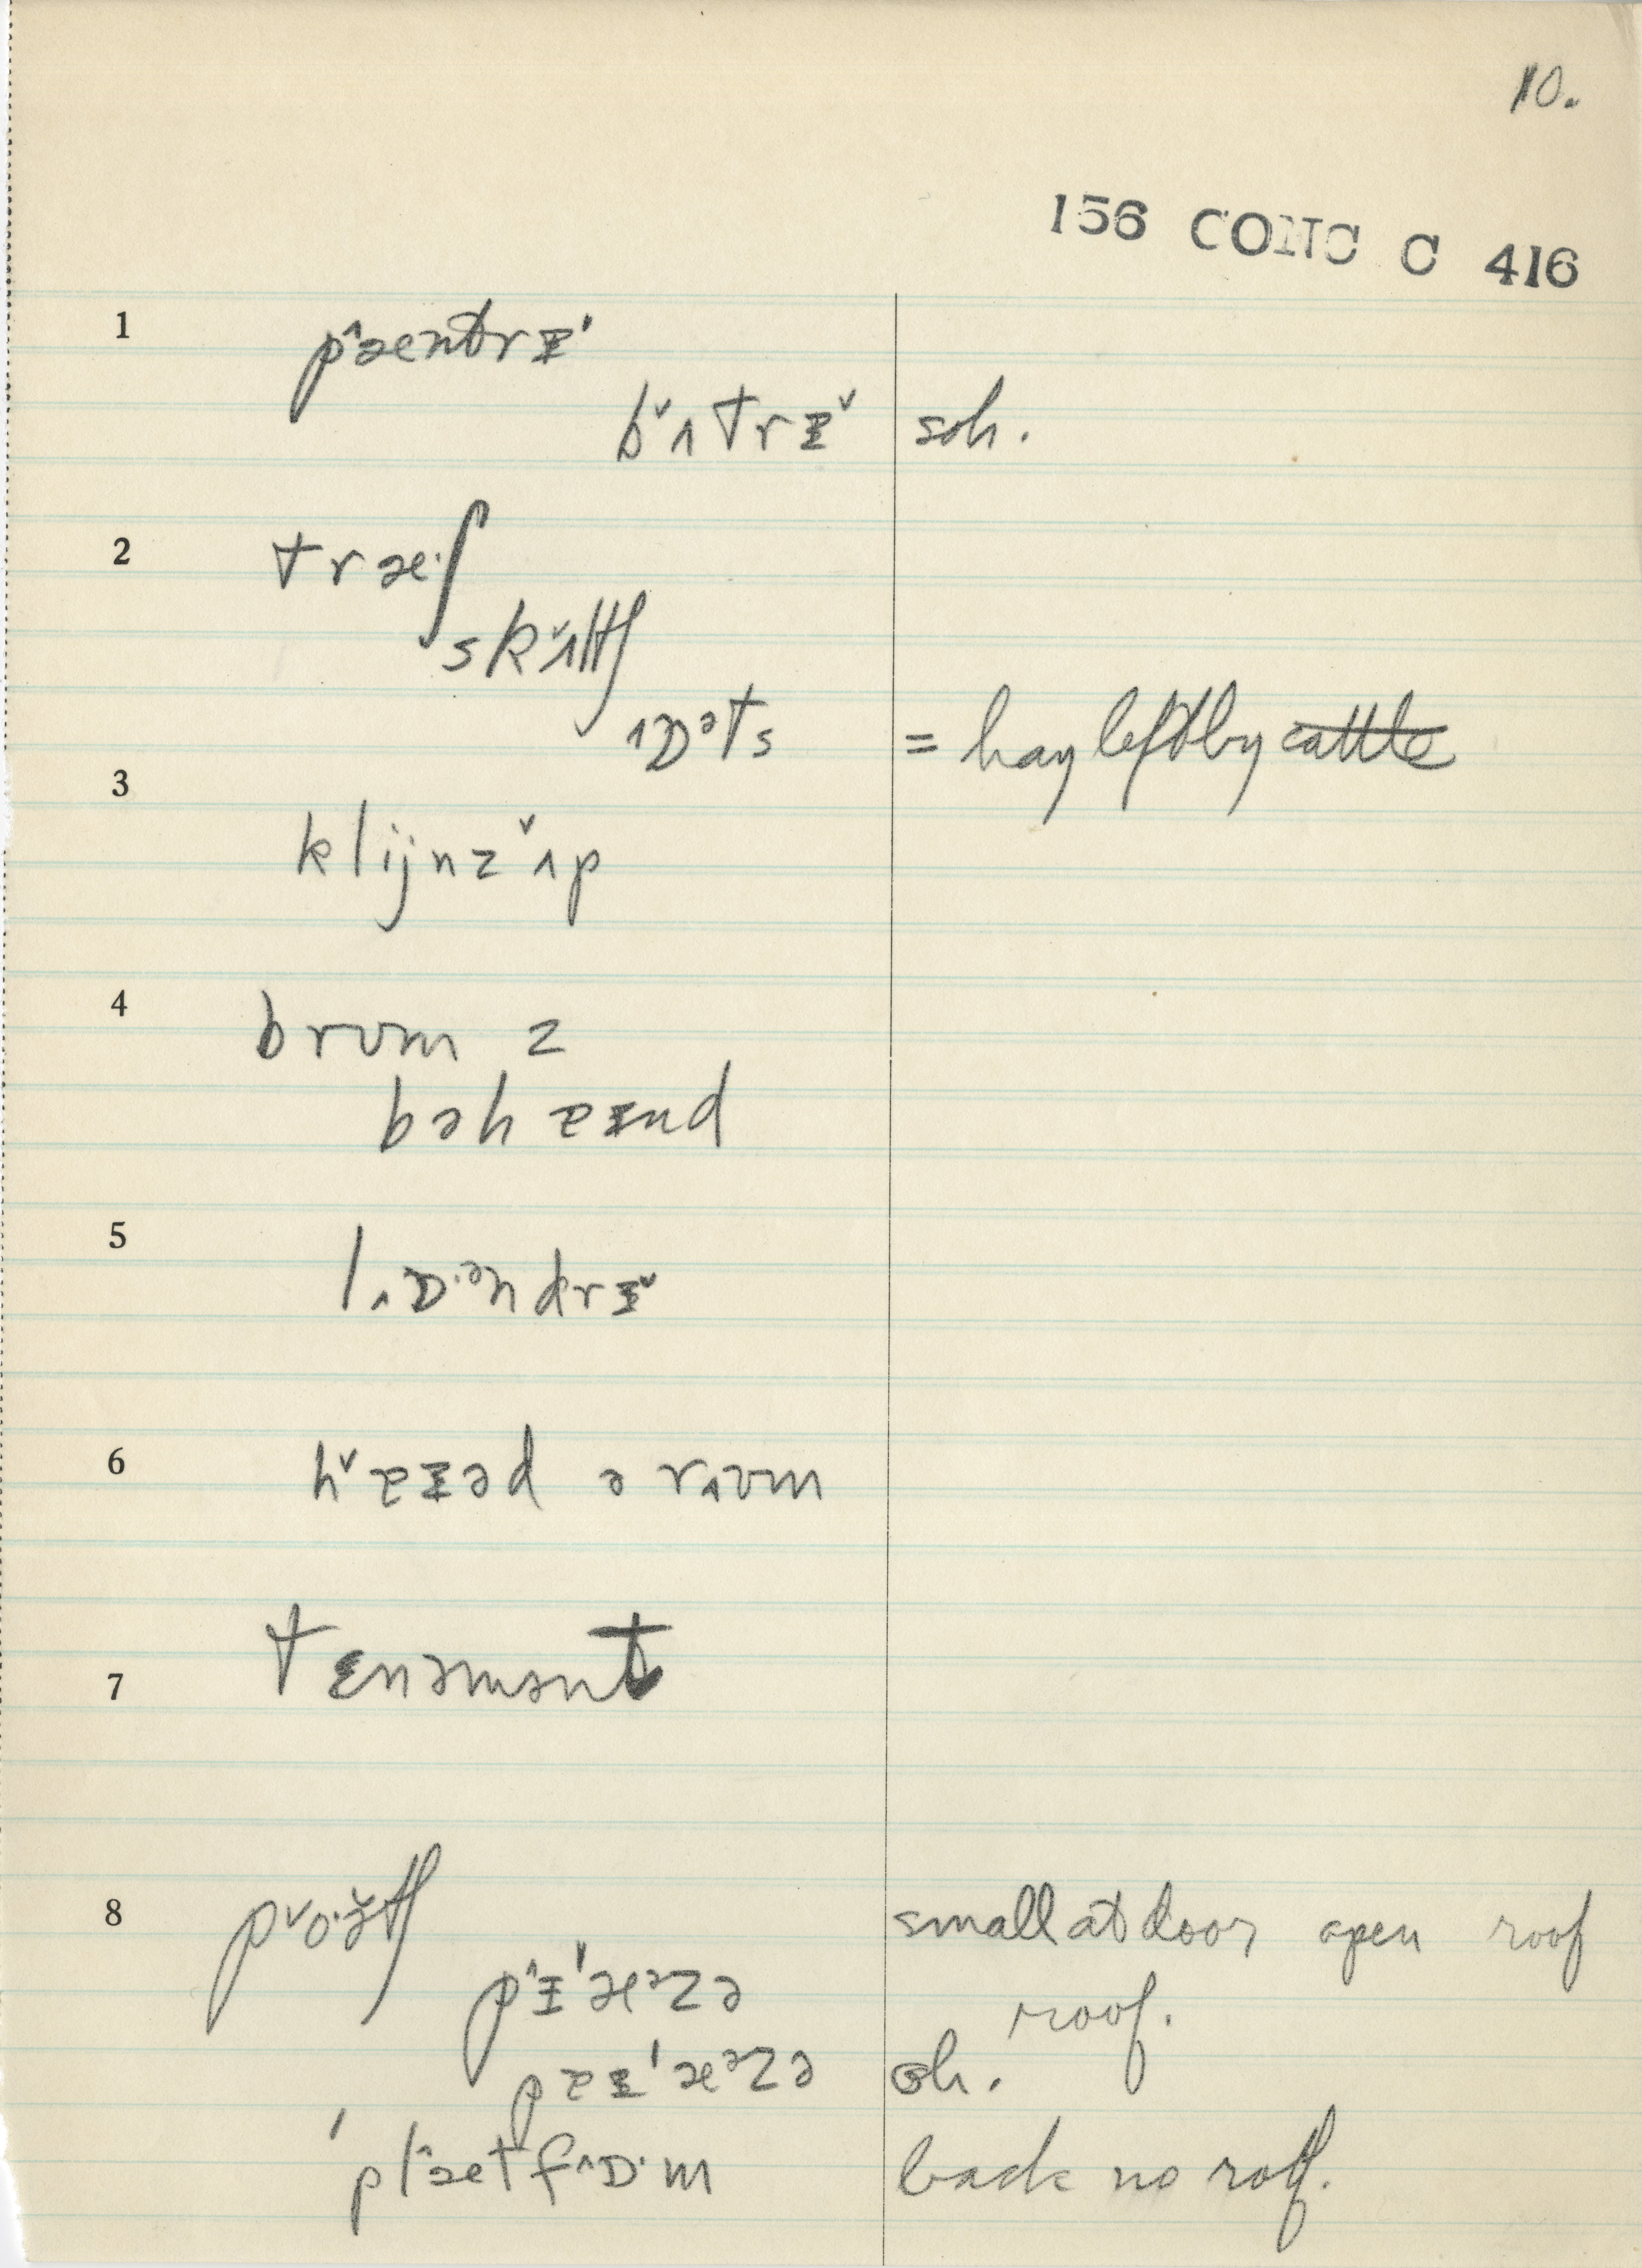 10.
156 CONC C 416
1 p˄æntrɪ'
b˅ʌtrɪ˅ soh.
2 træ·ʃ
sk˅ʌltʃ
˄ɒᵊts = hay left by ~~cattle~~
3 klijnz ˅ʌp
4 brʊm z
bəh eɪnd
5 l˄ɒ·ᵊndrɪ˅
6 h˅eɪəd ə r˄ʊm
7 tɛnəmənt
8 p˅o·ə̌tʃ small at door open roof
p˄ɪ'æᵊzə roof.
peɪ'æᵊzə oh.
'pl˄ætf˄ɒ·m back no roff.